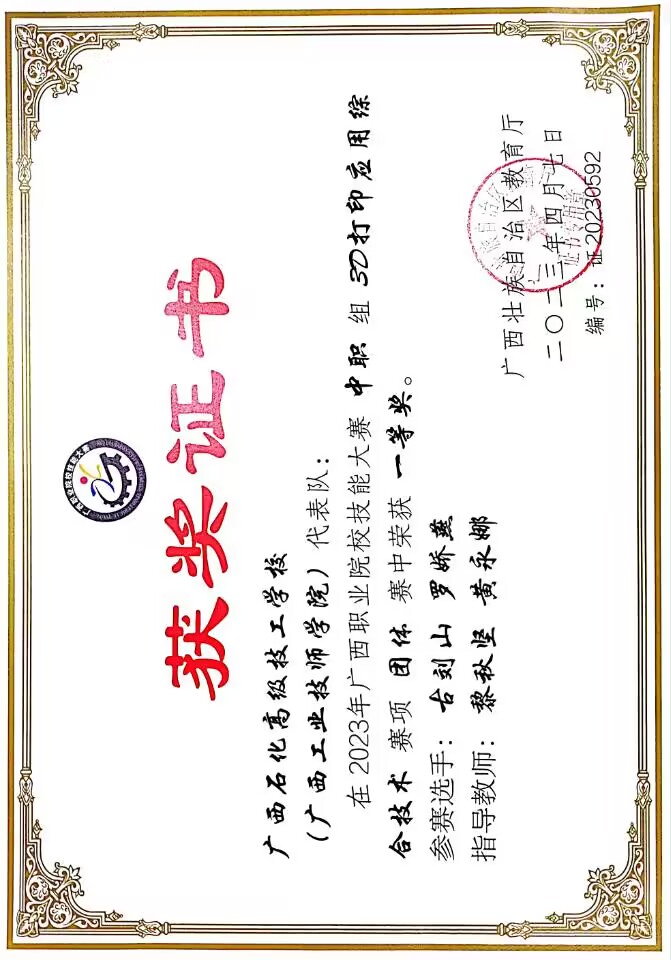 广西职业院校技能大赛
获奖证书
广西石化高级技工学校
(广西工业技师学院)代表队:
在2023年广西职业院校技能大赛 中职 组 3D打印应用综
合技术 赛项 团体 赛中荣获 一等奖。
参赛选手: 古刘山 罗娇燕
指导教师: 黎秋坚 黄永娜
广西壮族自治区教育厅
二〇二三年四月七日
证书专用章
编号: 证20230592